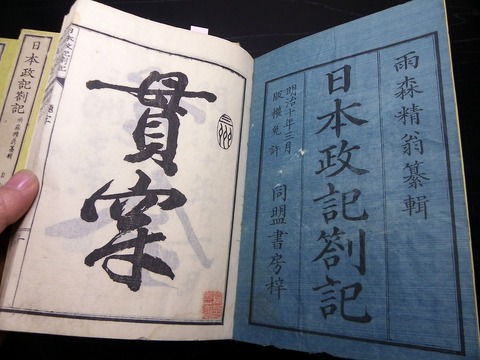 雨森精翁纂輯
日本政記劄記
明治十年三月
版權免許
同盟書房梓
貫穿
日本政記劄記
日本政記劄記